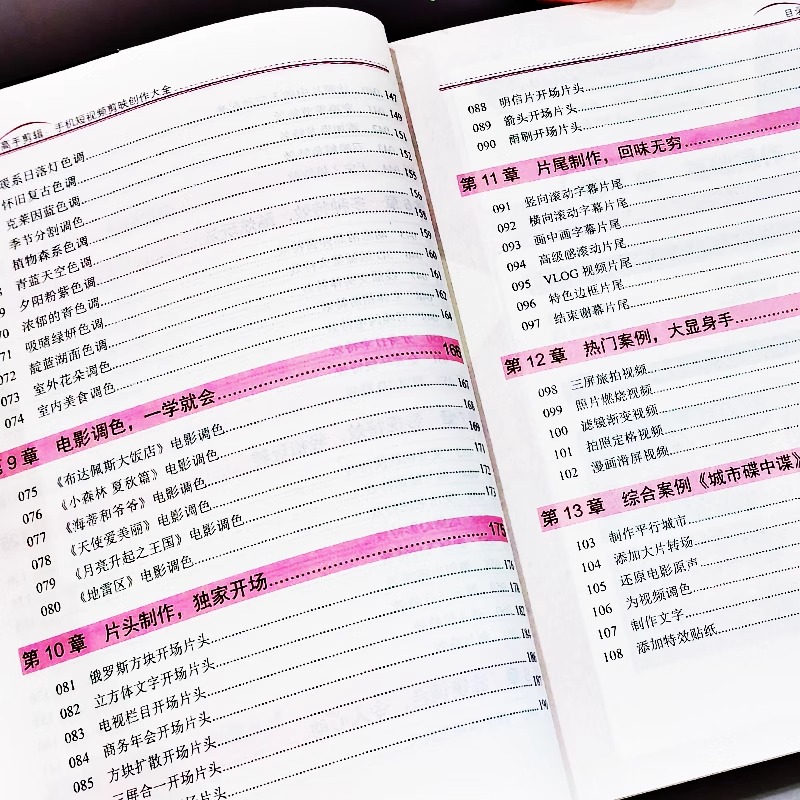 高手剪辑：手机短视频剪映创作大全
暖系日落灯色调……147
怀旧复古色调……149
克莱因蓝色调……151
季节分割调色……152
植物森系色调……155
青蓝天空色调……156
夕阳粉紫色调……158
浓郁的青色调……159
071 吸睛绿妍色调……160
072 靛蓝湖面色调……161
073 室外花朵调色……162
074 室内美食调色……164
第9章 电影调色，一学就会……166
075 《布达佩斯大饭店》电影调色……167
076 《小森林 夏秋篇》电影调色……168
077 《海蒂和爷爷》电影调色……169
078 《天使爱美丽》电影调色……171
079 《月亮升起之王国》电影调色……172
080 《地雷区》电影调色……173
第10章 片头制作，独家开场……175
081 俄罗斯方块开场片头……176
082 立方体文字开场片头……
083 电视栏目开场片头……182
084 商务年会开场片头……
085 方块扩散开场片头……186
三屏合一开场片头……
片头……
088 明信片开场片头
089 箭头开场片头
090 雨刷开场片头
第11章 片尾制作，回味无穷……
091 竖向滚动字幕片尾……
092 横向滚动字幕片尾……
093 画中画字幕片尾……
094 高级感滚动片尾……
095 VLOG视频片尾……
096 特色边框片尾……
097 结束谢幕片尾……
第12章 热门案例，大显身手……
098 三屏旅拍视频……
099 照片燃烧视频……
100 滤镜渐变视频……
101 拍照定格视频……
102 漫画滑屏视频……
第13章 综合案例《城市碟中谍》
103 制作平行城市……
104 添加大片转场……
105 还原电影原声……
106 为视频调色……
107 制作文字……
108 添加特效贴纸……